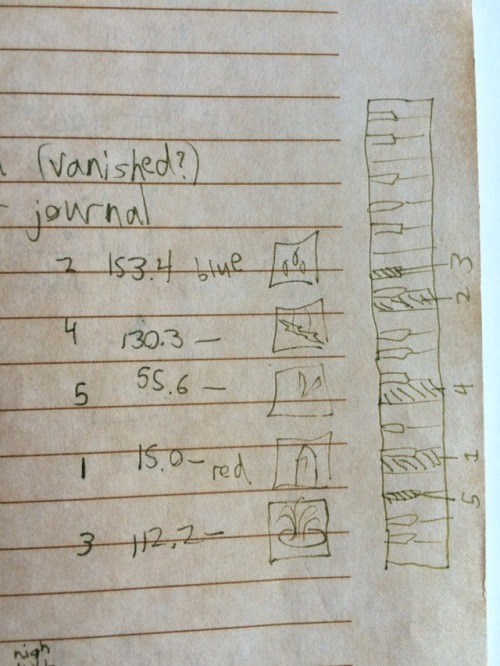 (vanished?)
journal
2 153.4 blue
4 130.3 —
5 55.6 —
1 15.0 — red
3 112.2 —
3
2
4
1
5
high